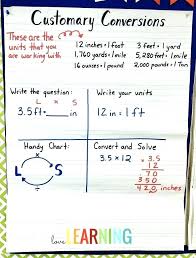 Customary Conversions
These are the units that you are working with
12 inches = 1 foot
3 feet = 1 yard
1,760 yards = 1 mile
5,280 feet = 1 mile
16 ounces = 1 pound
2,000 pounds = 1 Ton
Write the question:
L x S
3.5 ft = ___ in
Write your units
12 in = 1 ft
Handy Chart:
x
L S
÷
Convert and Solve
3.5 x 12
3.5
12
70
350
42.0 inches
love LEARNING